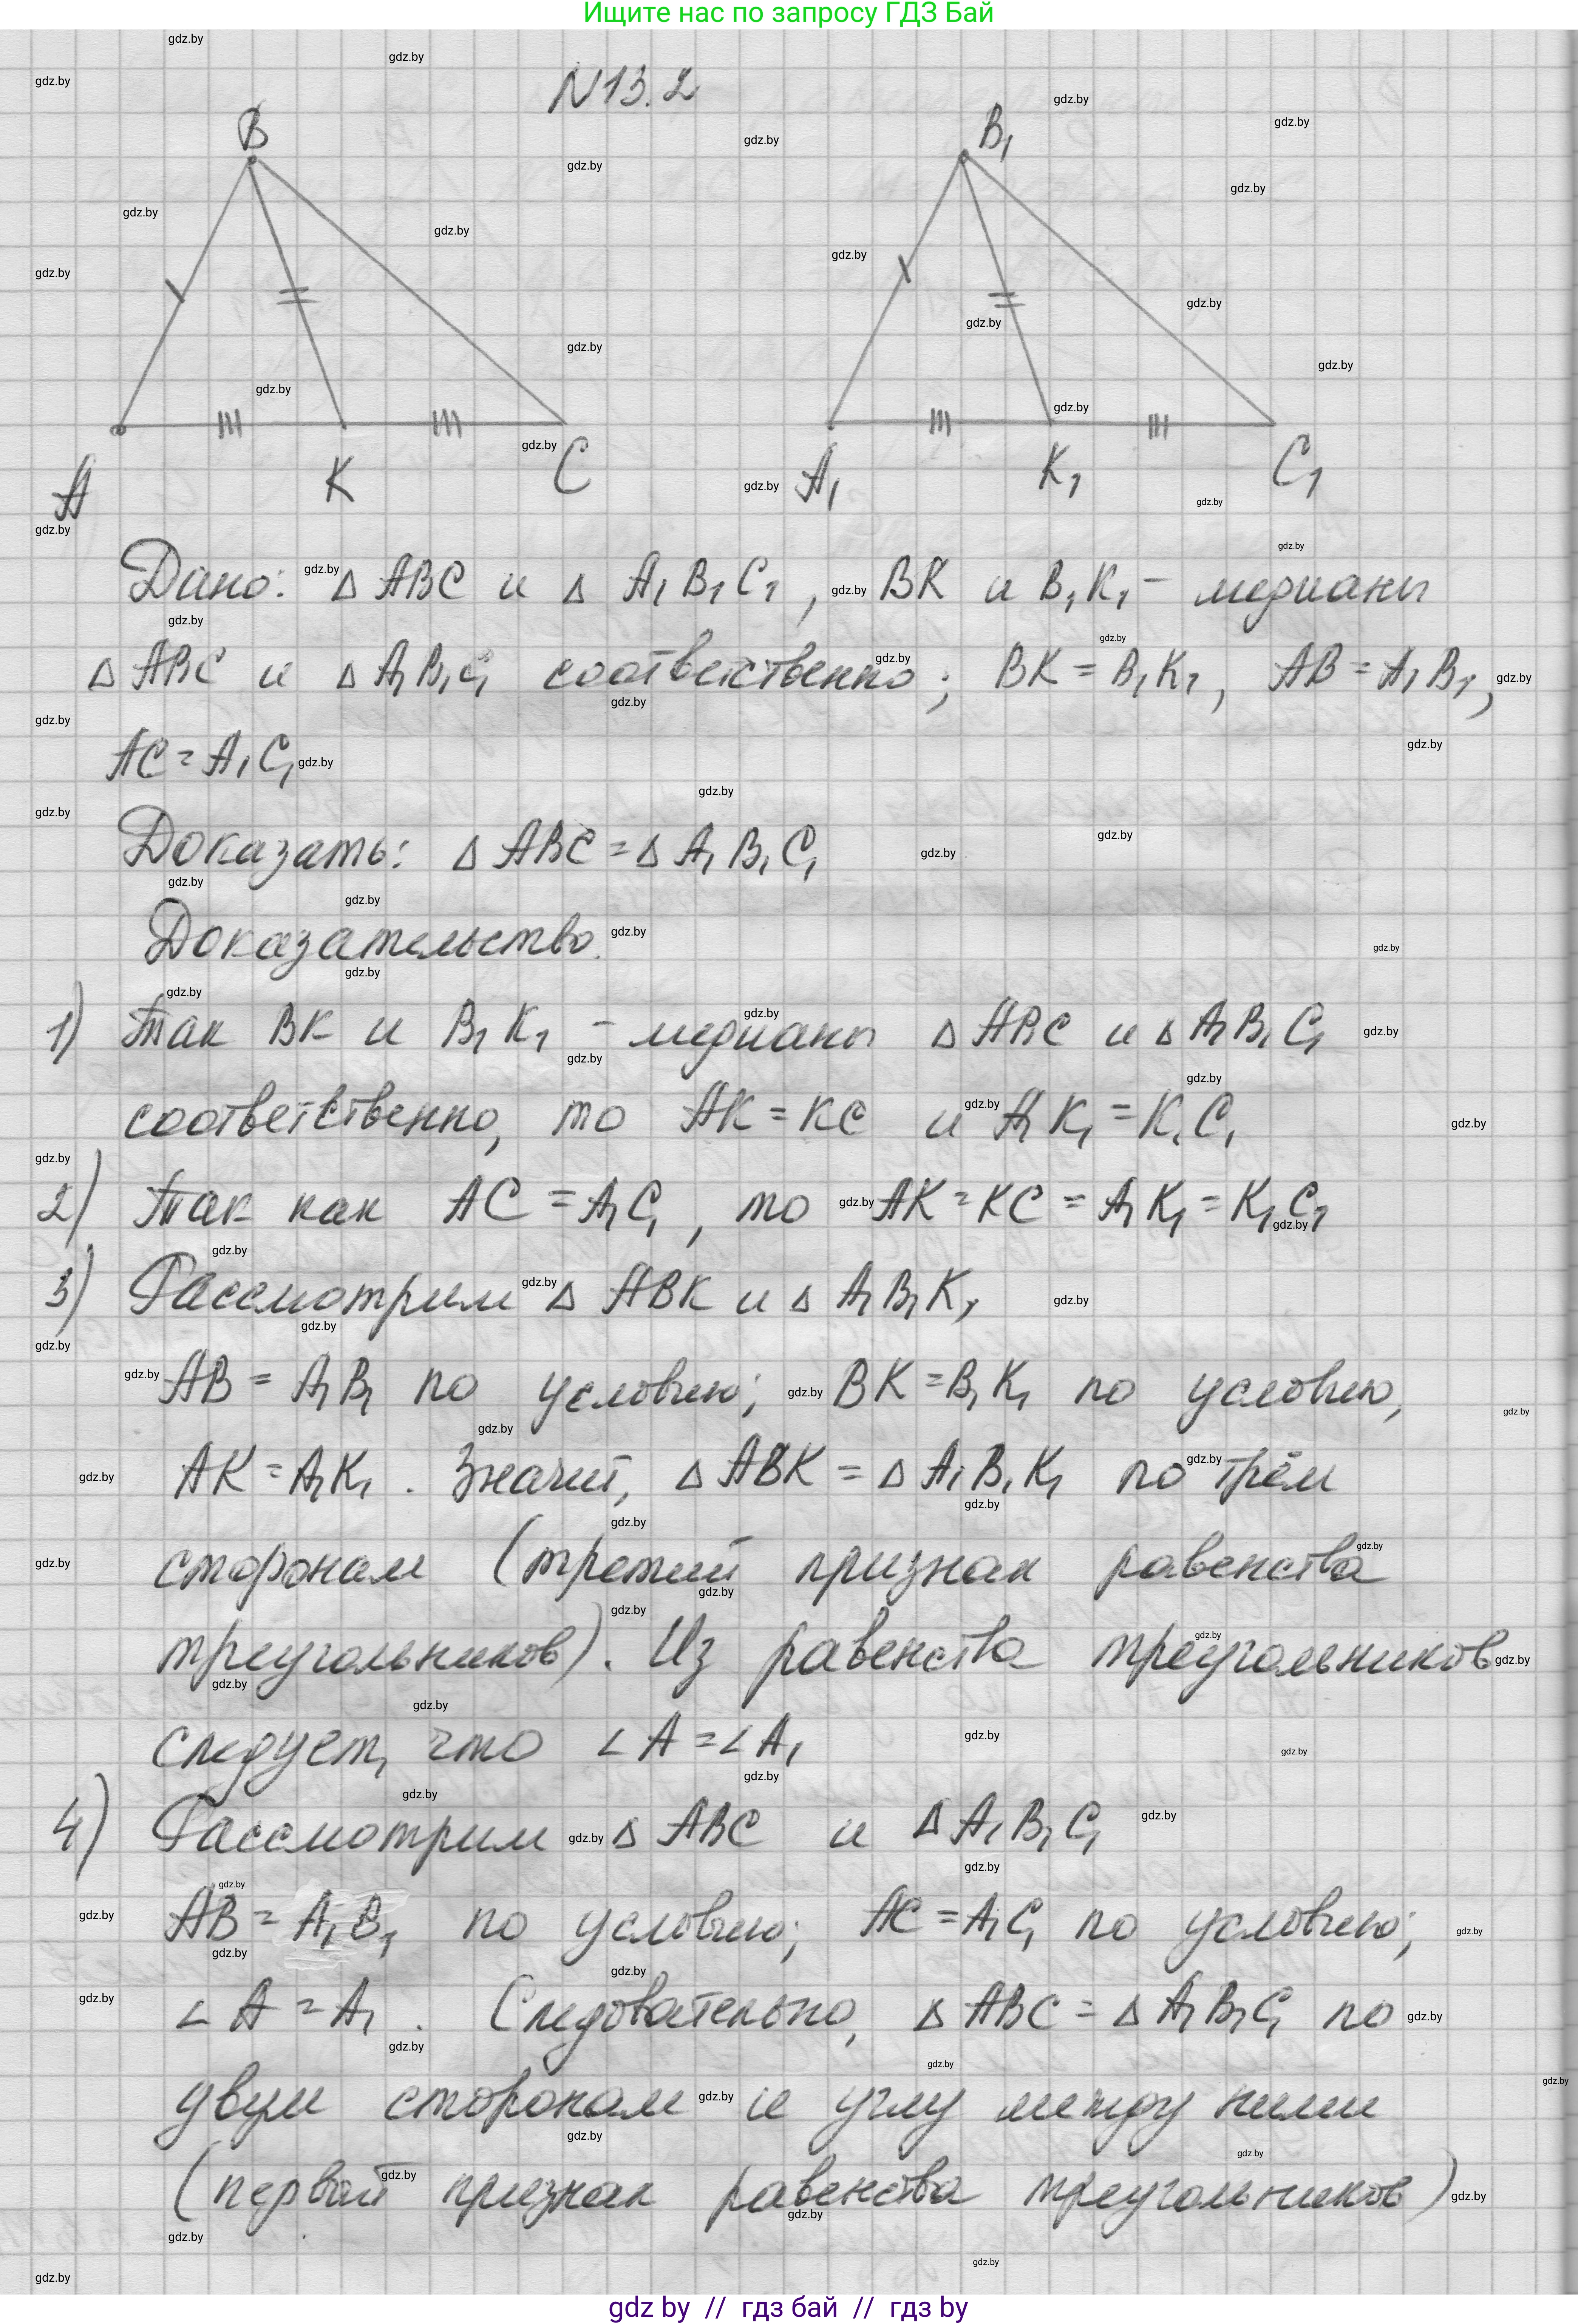 Ищите нас по запросу ГДЗ Бай
N13.2
B
B₁
A
K
C
A₁
K₁
C₁
Дано: Δ ABC и Δ A₁B₁C₁, BK и B₁K₁ - медианы
Δ ABC и Δ A₁B₁C₁ соответственно; BK = B₁K₁, AB = A₁B₁,
AC = A₁C₁
Доказать: Δ ABC = Δ A₁B₁C₁
Доказательство.
1) Так BK и B₁K₁ - медианы Δ ABC и Δ A₁B₁C₁
соответственно, то AK = KC и A₁K₁ = K₁C₁
2) Так как AC = A₁C₁, то AK = KC = A₁K₁ = K₁C₁
3) Рассмотрим Δ ABK и Δ A₁B₁K₁
AB = A₁B₁ по условию; BK = B₁K₁ по условию,
AK = A₁K₁. Значит, Δ ABK = Δ A₁B₁K₁ по трём
сторонам (третий признак равенства
треугольников). Из равенства треугольников
следует, что ∠A = ∠A₁
4) Рассмотрим Δ ABC и Δ A₁B₁C₁
AB = A₁B₁ по условию; AC = A₁C₁ по условию;
∠A = A₁. Следовательно, Δ ABC = Δ A₁B₁C₁ по
двум сторонам и углу между ними
(первый признак равенства треугольников)
gdz by // гдз бай // гдз by